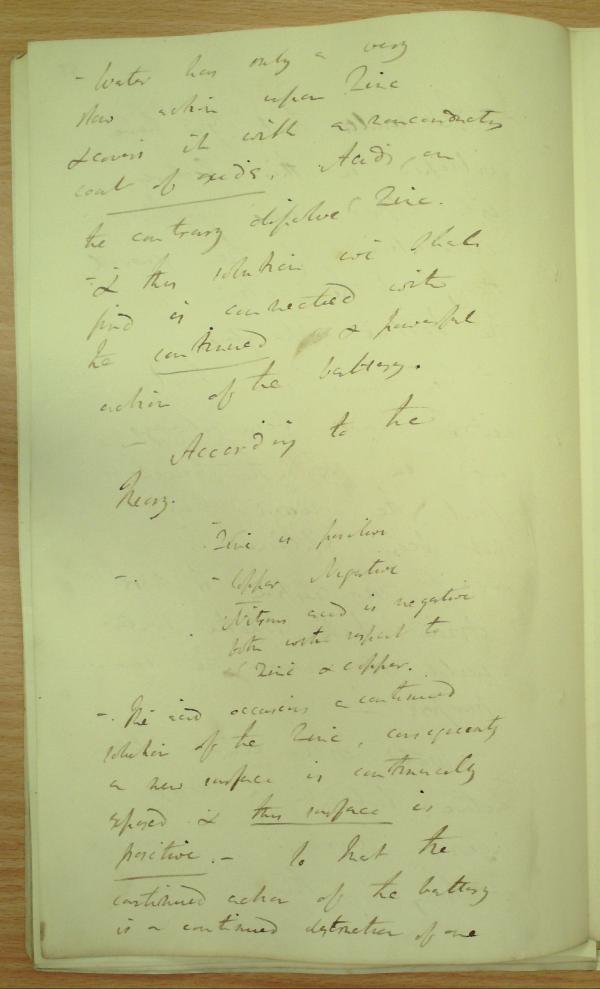 - Water has only a very
slow action upon Zinc
& covers it with a nonconducting
coat of oxide. Acids, on
the contrary dissolve Zinc.
- & this solution we shall
find is connected with
the continued & powerful
action of the battery.
- According to the
theory.
Zinc is positive
- Copper Negative
Nitrous acid is negative
both with respect to
Zinc & Copper.
- The acid occasions a continued
solution of the Zinc, consequently
a new surface is continually
exposed & this surface is
positive. - So that the
continued action of the battery
is a continued destruction of one